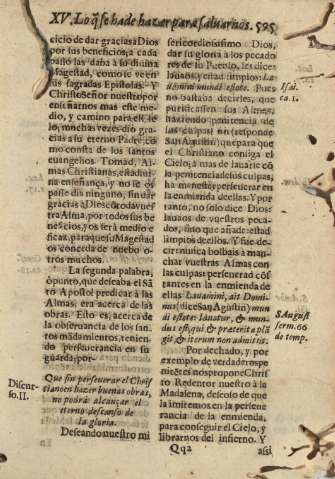 XV. Lo q̃ se ha de hazer para saluarnos. 595
cicio de dar gracias a Dios
por sus beneficios; a cada
passo las daba a su diuina
Magestad, como se ve en
sus sagradas Epistolas. Y
Christo Señor nuestro por
enseñarnos mas este me-
dio, y camino para el Cie-
lo, muchas vezes dio gra-
cias a su eterno Padre, co-
mo consta de los santos
euangelios. Tomad, Al-
mas Christianas, esta diui-
na enseñança, y no se os
passe dia ninguno, sin dar
gracias a Dios de toda vues-
tra Alma, por todos sus be-
neficios, y os será medio e-
ficaz, para que su Magestad
os conceda de nuebo o-
tros muchos.
La segunda palabra,
ò punto, que deseaba el Sã-
to Apostol predicar à las
Almas, era acerca de las
obras. Esto es, acerca de
la obseruancia de los san-
tos mãdamientos, tenien-
do perseuerancia en su
guarda; por-
Discur-
so. II.
Que sin perseuerar el Chris-
tiano en hazer buenas obras,
no podrà alcançar el
eterno descanso de
la gloria.
Deseando nuestro mi
sericordiosissimo Dios,
dar su gloria a los pecado-
res de su Pueblo, les dize:
Lauaos, y estad limpios: La-
uamini mundi estote. Pues
no bastaba decirles, que
purificassen sus Almas,
haziendo penitencia de
sus culpas? no (responde
San Agustin) que para que
el Christiano consiga el
Cielo, a mas de lauarse cõ
la penitencia de sus culpas,
ha menester perseuerar en
la enmienda dellas. Y por
tanto, no solo dize Dios:
Lauaos de vuestros peca-
dos, sino que añade: estad
limpios dellos. Y esse de-
cir: nunca bolbais a man-
char vuestras Almas con
las culpas: perseuerad cõs-
tantes en la enmienda de
ellas: Lauamini, ait Domi-
nus (dice San Agustin) mun-
di estote: lauatur, & mun-
dus est, qui & præterita plã
git & iterum non admittit.
Por dechado, y por
exemplo de verdaderos pe-
nitẽtes nos propone Chris-
to Redentor nuestro à la
Madalena, deseoso de que
la imitemos en la perseue-
rancia de la enmienda,
para conseguir el Cielo, y
librarnos del infierno. Y
Isai.
ca. 1.
S. August
serm. 66
de temp.
Qq2 assi